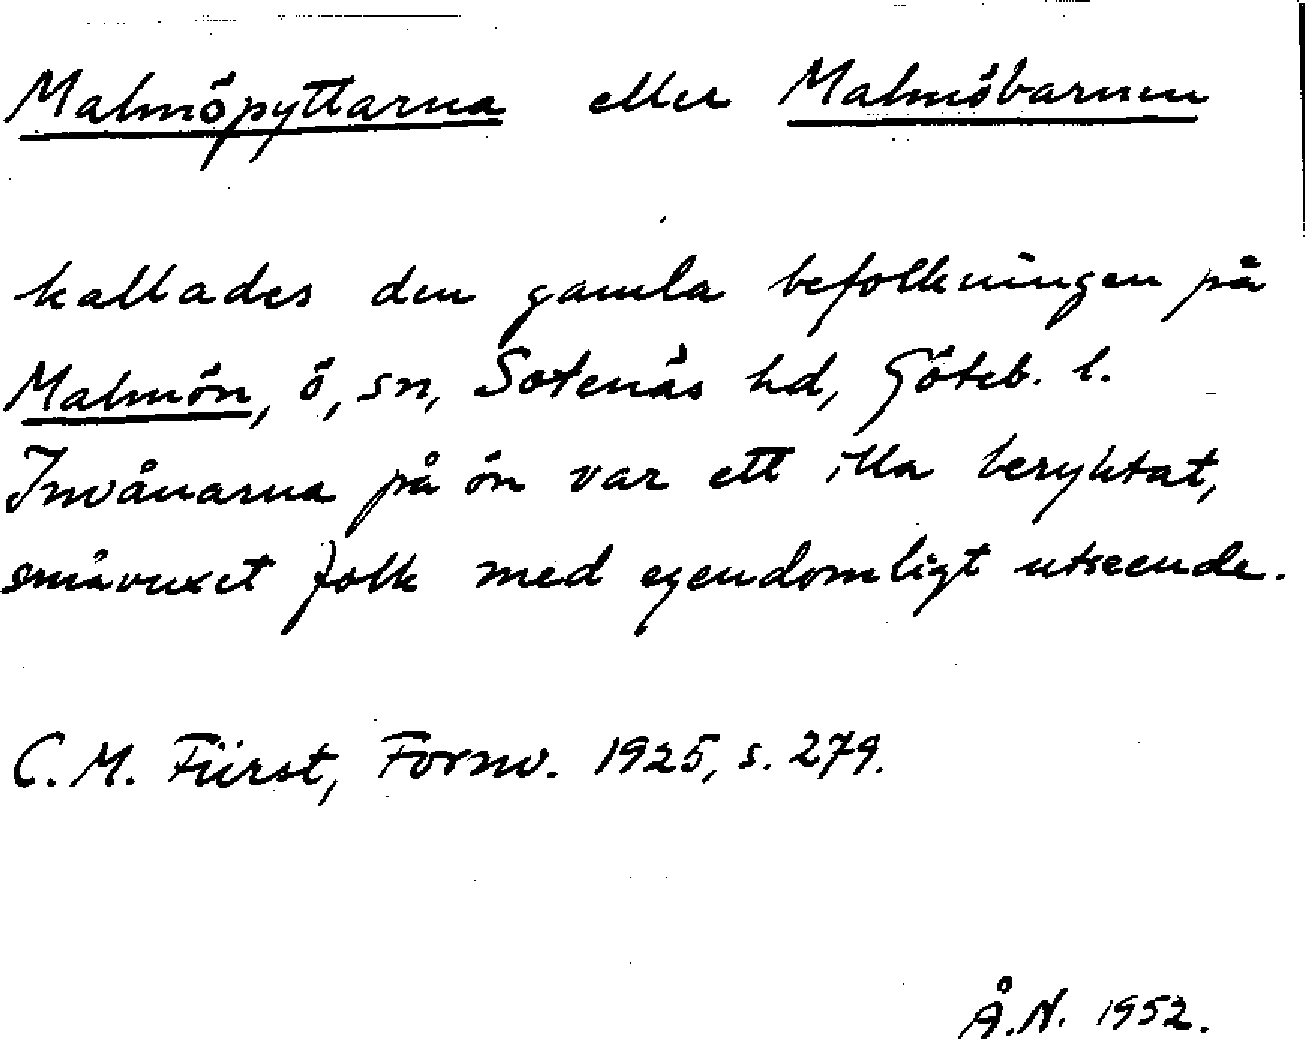 Malmöpyttarna eller Malmöbarnen
kallades den gamla befolkningen på
Malmön, ö, sn, Sotenäs hd, Göteb. l.
Invånarna på ön var ett illa beryktat,
småvuxet folk med egendomligt utseende.
C. M. Fürst, Fornv. 1925, s. 279.
Å.N. 1952.